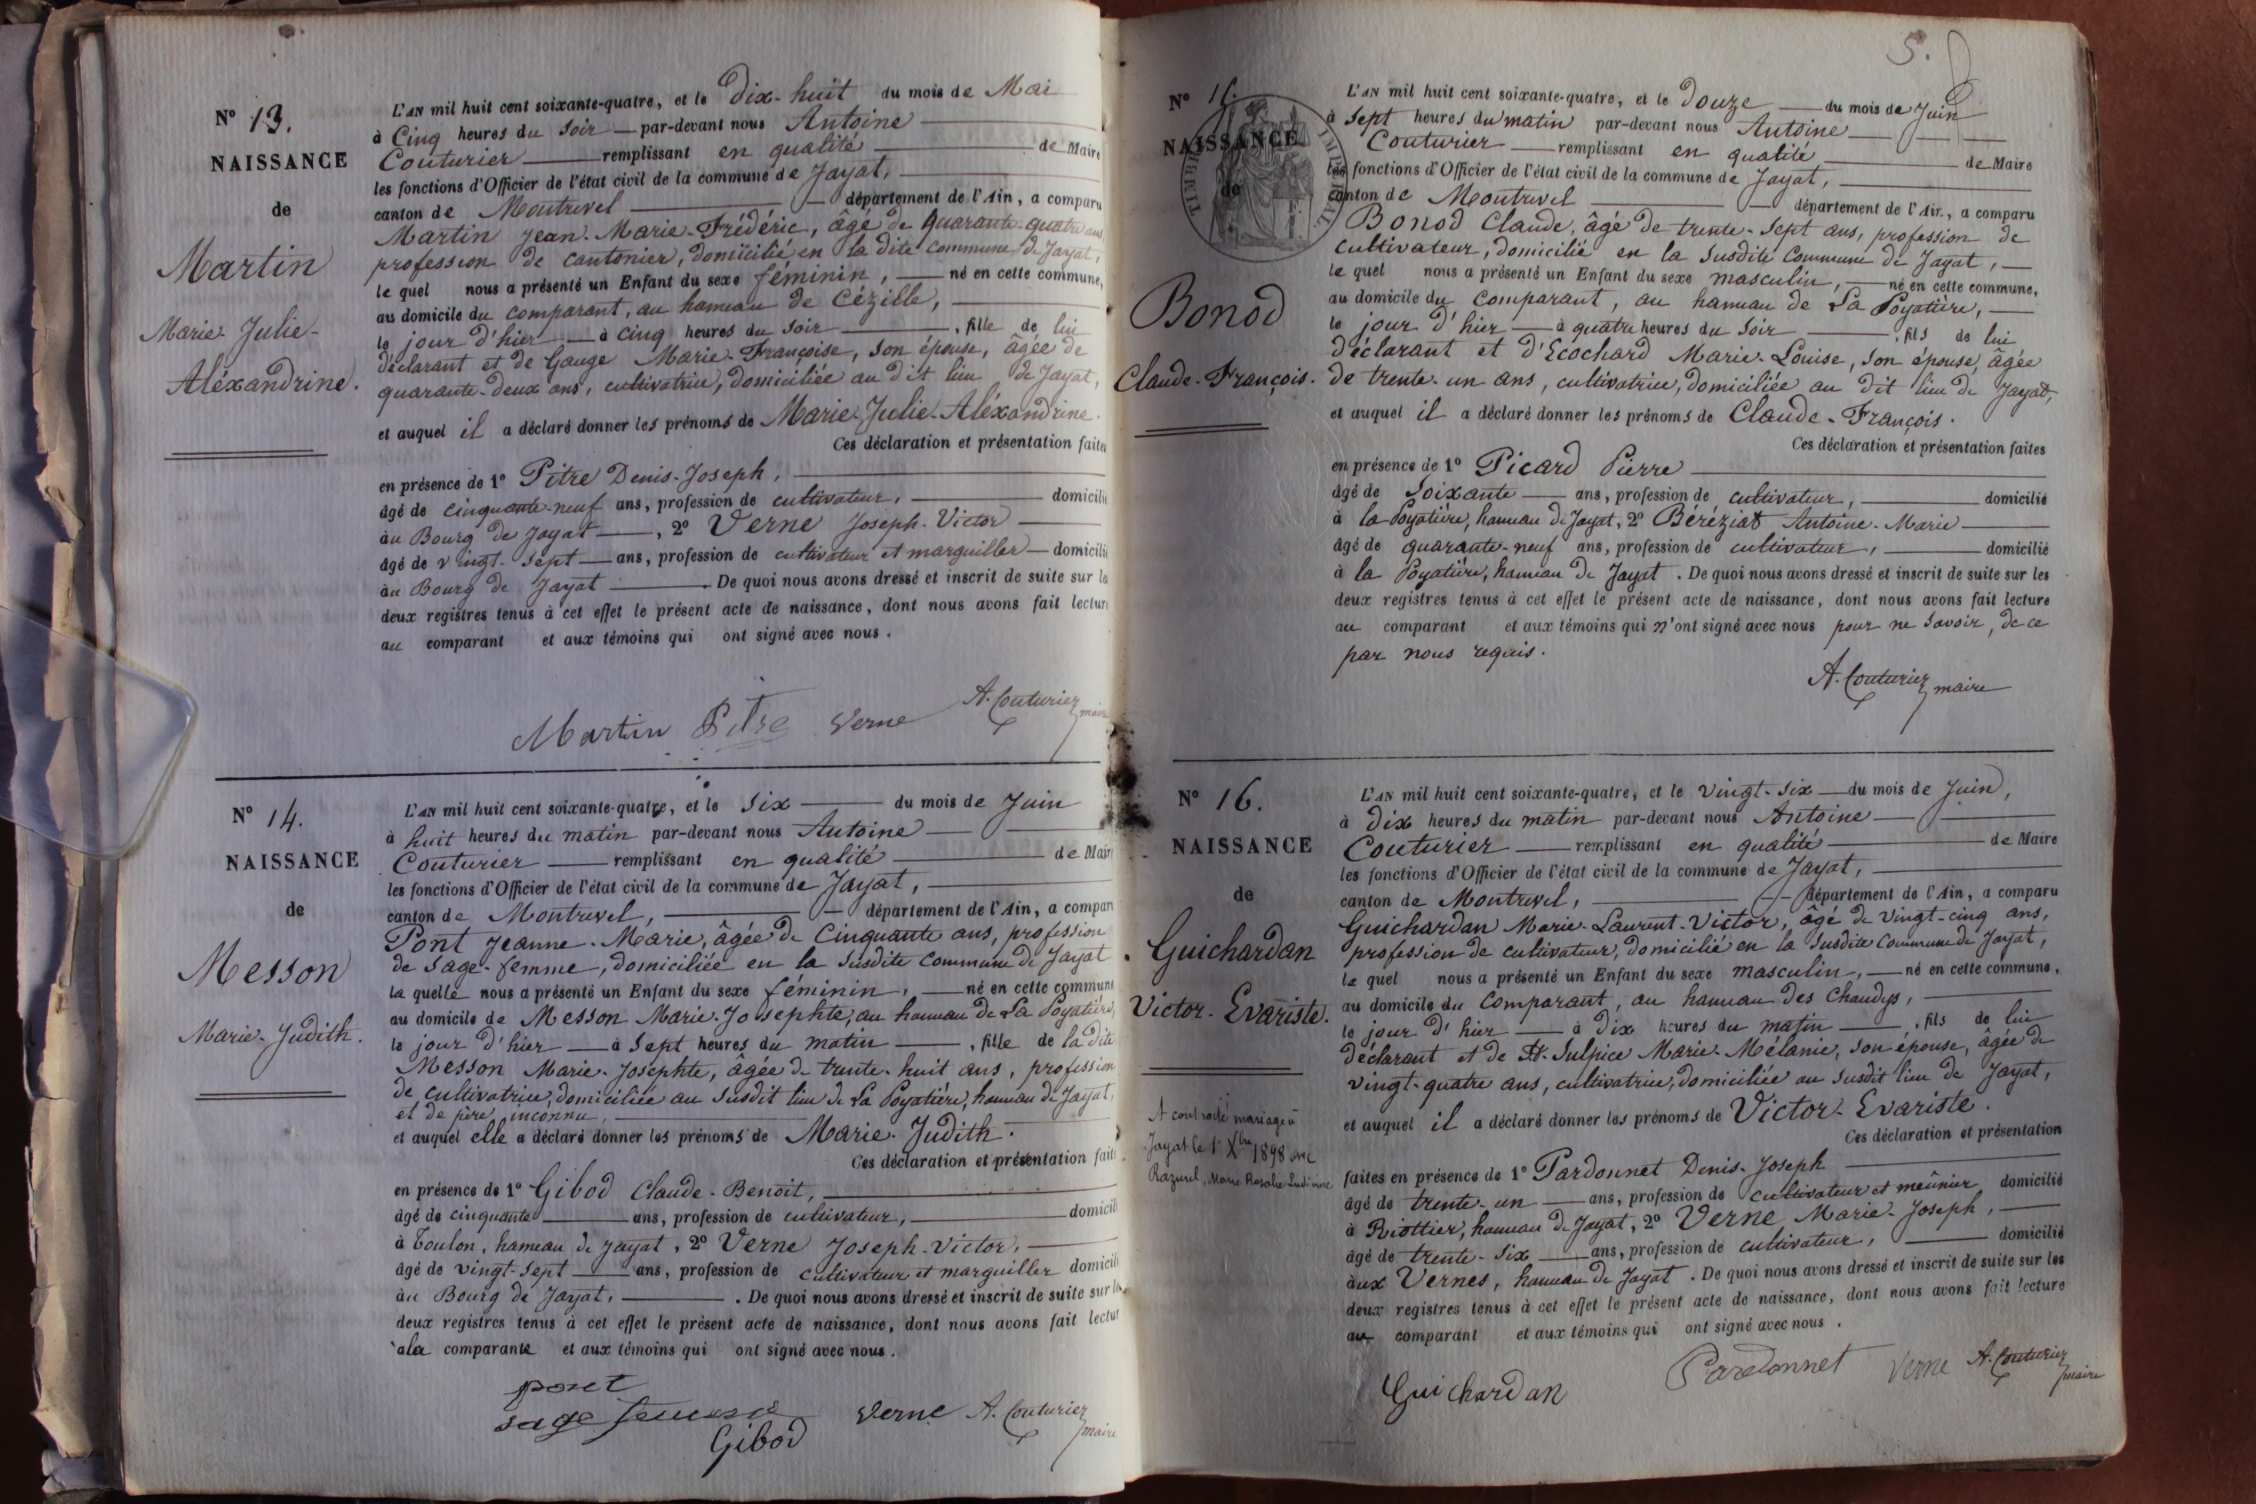 N° 13.
NAISSANCE
de
Martin
Marie-Julie-
Aléxandrine.
L'AN mil huit cent soixante-quatre, et le Dix-huit du mois de Mai
à Cinq heures du Soir par-devant nous Antoine
Couturier remplissant en qualité de Maire
les fonctions d'Officier de l'état civil de la commune de Jayat,
canton de Montrevel département de l'Ain, a comparu
Martin Jean-Marie-Frédéric, âgé de quarante-quatre ans,
profession de cantonier, domicilié en la dite commune de Jayat,
le quel nous a présenté un Enfant du sexe féminin, né en cette commune,
au domicile du comparant, au hameau de Cézille,
le jour d'hier à cinq heures du Soir, fille de lui
déclarant et de Gauge Marie-Françoise, son épouse, âgée de
quarante-deux ans, cultivatrice, domiciliée au dit lieu de Jayat,
et auquel il a déclaré donner les prénoms de Marie-Julie-Aléxandrine.
Ces déclaration et présentation faites
en présence de 1° Pitre Denis-Joseph,
âgé de cinquante-neuf ans, profession de cultivateur, domicilié
au Bourg de Jayat, 2° Verne Joseph-Victor
âgé de vingt-sept ans, profession de cultivateur et marguiller domicilié
au Bourg de Jayat. De quoi nous avons dressé et inscrit de suite sur les
deux registres tenus à cet effet le présent acte de naissance, dont nous avons fait lecture
au comparant et aux témoins qui ont signé avec nous.
Martin Pitre Verne A. Couturier maire
N° 14.
NAISSANCE
de
Messon
Marie-Judith.
L'AN mil huit cent soixante-quatre, et le Six du mois de Juin
à huit heures du matin par-devant nous Antoine
Couturier remplissant en qualité de Maire
les fonctions d'Officier de l'état civil de la commune de Jayat,
canton de Montrevel, département de l'Ain, a comparu
Pont Jeanne-Marie, âgée de Cinquante ans, profession
de Sage-femme, domiciliée en la Susdite Commune de Jayat
la quelle nous a présenté un Enfant du sexe féminin, né en cette commune
au domicile de Messon Marie-Josephte, au hameau de La Poyatière,
le jour d'hier à Sept heures du matin, fille de la dite
Messon Marie-Josephte, âgée de trente-huit ans, profession
de cultivatrice, domiciliée au Susdit lieu de La Poyatière, hameau de Jayat,
et de père inconnu,
et auquel elle a déclaré donner les prénoms de Marie-Judith.
Ces déclaration et présentation faites
en présence de 1° Gibod Claude-Benoit,
âgé de cinquante ans, profession de cultivateur, domicilié
à Toulon, hameau de Jayat, 2° Verne Joseph-Victor,
âgé de vingt-sept ans, profession de cultivateur et marguiller domicilié
au Bourg de Jayat. De quoi nous avons dressé et inscrit de suite sur les
deux registres tenus à cet effet le présent acte de naissance, dont nous avons fait lecture
à la comparante et aux témoins qui ont signé avec nous.
pont
sage femme Verne A. Couturier maire
Gibod
5.
N° 15.
NAISSANCE
de
TIMBRE IMPERIAL
Bonod
Claude-François.
L'AN mil huit cent soixante-quatre, et le Douze du mois de Juin
à Sept heures du matin par-devant nous Antoine
Couturier remplissant en qualité de Maire
les fonctions d'Officier de l'état civil de la commune de Jayat,
canton de Montrevel département de l'Ain, a comparu
Bonod Claude, âgé de trente-sept ans, profession de
cultivateur, domicilié en la Susdite Commune de Jayat,
le quel nous a présenté un Enfant du sexe masculin, né en cette commune,
au domicile du comparant, au hameau de La Poyatière,
le jour d'hier à quatre heures du Soir, fils de lui
déclarant et d'Ecochard Marie-Louise, son épouse, âgée
de trente-un ans, cultivatrice, domiciliée au dit lieu de Jayat,
et auquel il a déclaré donner les prénoms de Claude-François.
Ces déclaration et présentation faites
en présence de 1° Picard Pierre
âgé de Soixante ans, profession de cultivateur, domicilié
à la Poyatière, hameau de Jayat, 2° Béréziat Antoine-Marie
âgé de quarante-neuf ans, profession de cultivateur, domicilié
à la Poyatière, hameau de Jayat. De quoi nous avons dressé et inscrit de suite sur les
deux registres tenus à cet effet le présent acte de naissance, dont nous avons fait lecture
au comparant et aux témoins qui n'ont signé avec nous pour ne Savoir, de ce
par nous requis.
A. Couturier maire
N° 16.
NAISSANCE
de
Guichardan
Victor-Evariste.
A contracté mariage à
Jayat le 1er Xbre 1898 avec
Razurel, Marie Rosalie Ludivine
L'AN mil huit cent soixante-quatre, et le Vingt-Six du mois de Juin,
à Dix heures du matin par-devant nous Antoine
Couturier remplissant en qualité de Maire
les fonctions d'Officier de l'état civil de la commune de Jayat,
canton de Montrevel, département de l'Ain, a comparu
Guichardan Marie-Laurent-Victor, âgé de vingt-cinq ans,
profession de cultivateur, domicilié en la Susdite Commune de Jayat,
le quel nous a présenté un Enfant du sexe masculin, né en cette commune,
au domicile du Comparant, au hameau des Chandys,
le jour d'hier à Dix heures du matin, fils de lui
déclarant et de St. Sulpice Marie-Mélanie, son épouse, âgée de
vingt-quatre ans, cultivatrice, domiciliée au Susdit lieu de Jayat,
et auquel il a déclaré donner les prénoms de Victor-Evariste.
Ces déclaration et présentation
faites en présence de 1° Pardonnet Denis-Joseph
âgé de trente-un ans, profession de cultivateur et meûnier domicilié
à Riottier, hameau de Jayat, 2° Verne Marie-Joseph,
âgé de trente-six ans, profession de cultivateur, domicilié
aux Vernes, hameau de Jayat. De quoi nous avons dressé et inscrit de suite sur les
deux registres tenus à cet effet le présent acte de naissance, dont nous avons fait lecture
au comparant et aux témoins qui ont signé avec nous.
Guichardan Pardonnet Verne A. Couturier maire